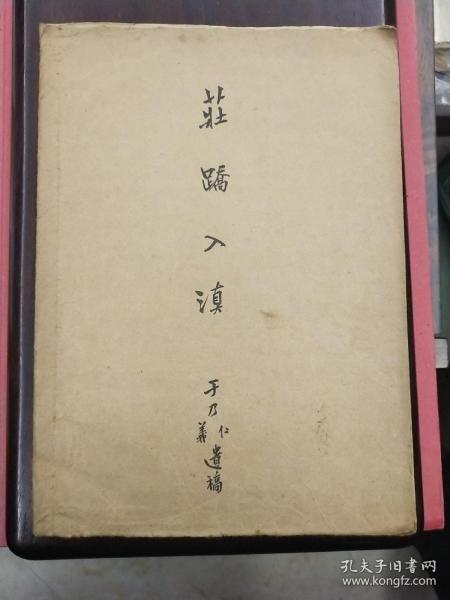 莊蹻入滇
于乃仁義遺稿
孔夫子旧书网
www.kongfz.com